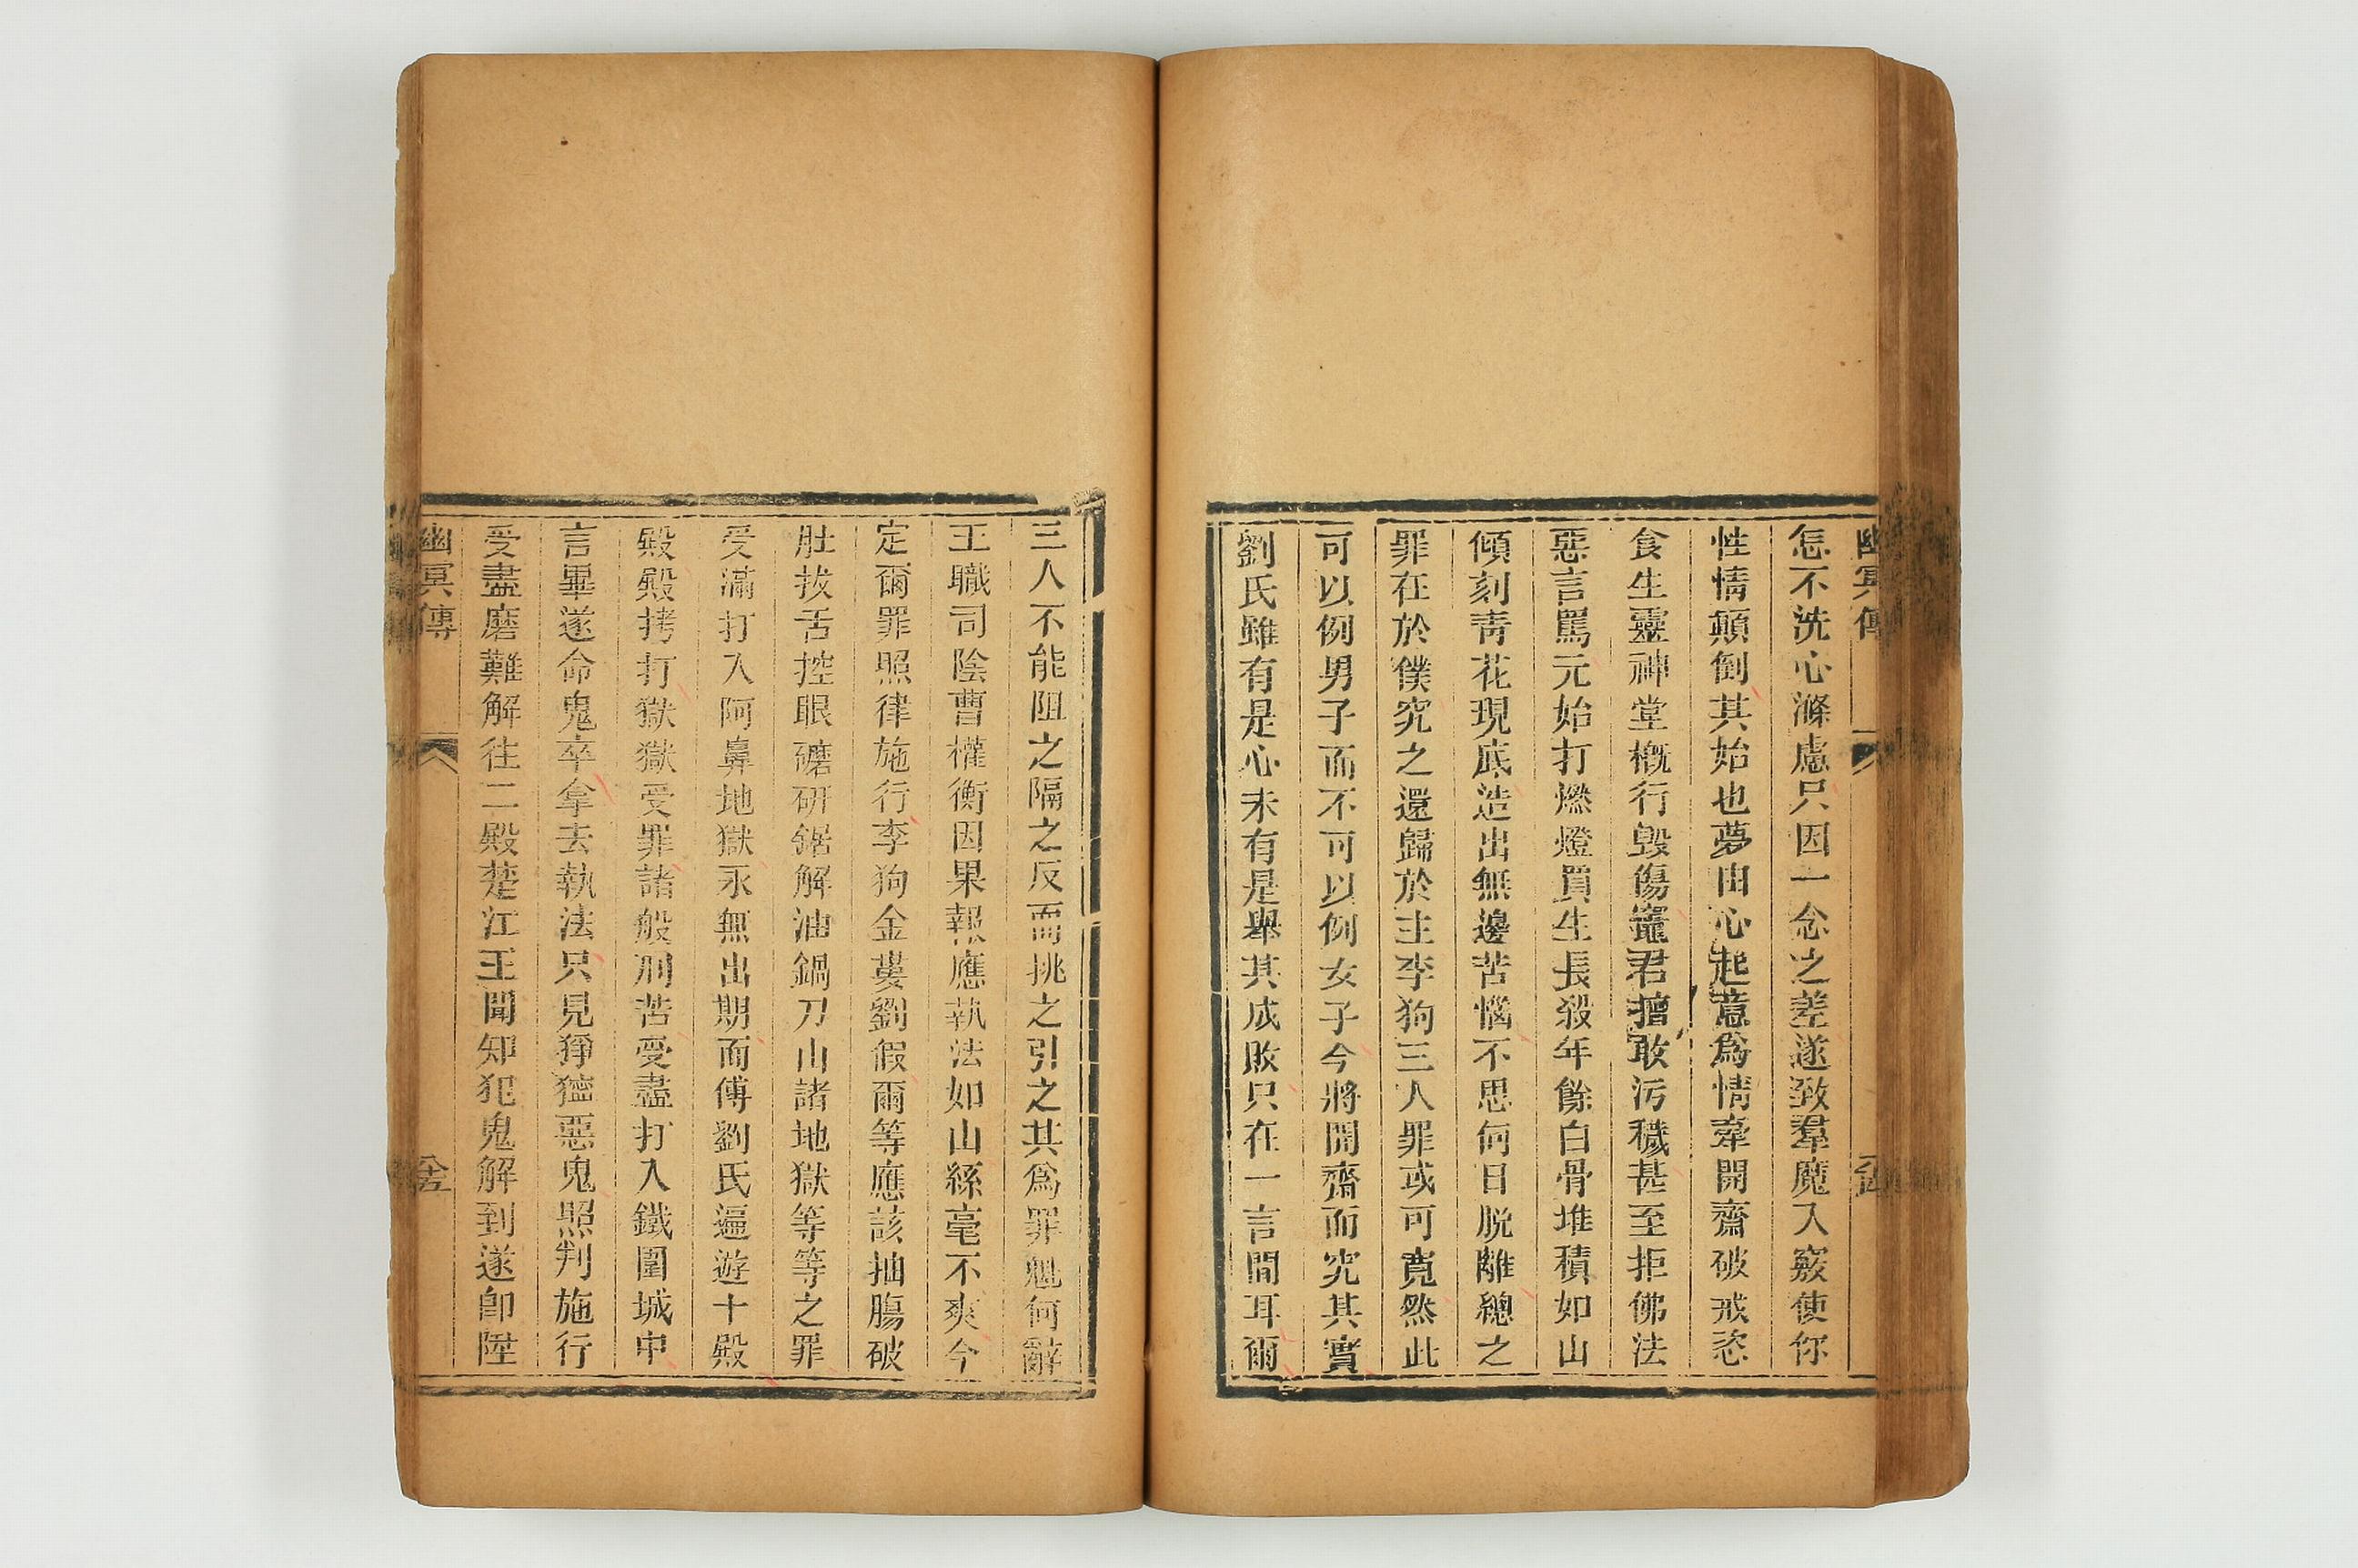 幽冥傳
怎不洗心滌慮只因一念之差遂致羣魔入竅使你
性情顛倒其始也夢由心起意爲情牽開齋破戒恣
食生靈神堂概行毀傷竈君擅敢污穢甚至拒佛法
惡言罵元始打燃燈買生長殺年餘白骨堆積如山
傾刻靑花現底造出無邊苦惱不思何日脫離總之
罪在於僕究之還歸於主李狗三人罪或可寬然此
可以例男子而不可以例女子今將開齋而究其實
劉氏雖有是心未有是舉其成敗只在一言間耳爾
三人不能阻之隔之反而挑之引之其爲罪魁何辭
王職司陰曹權衡因果報應執法如山絲毫不爽今
定爾罪照律施行李狗金蔞劉假爾等應該抽腸破
肚拔舌控眼磨研鋸解油鍋刀山諸地獄等等之罪
受滿打入阿鼻地獄永無出期而傅劉氏遍遊十殿
殿殿拷打獄獄受罪諸般刑苦受盡打入鐵圍城中
言畢遂命鬼卒拿去執法只見猙獰惡鬼照判施行
受盡磨難解往二殿楚江王聞知犯鬼解到遂卽陞
幽冥傳
全五